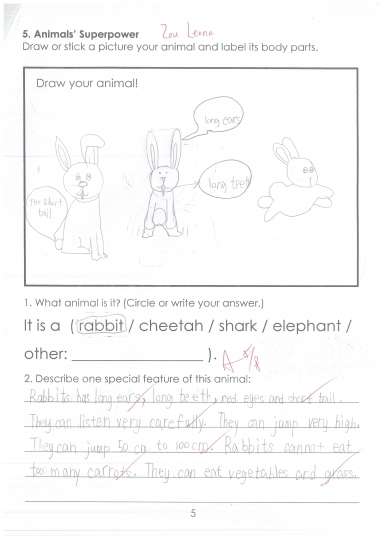 5. Animals' Superpower Zou Leona
Draw or stick a picture your animal and label its body parts.
Draw your animal!
long ears
long teeth
The short
tail
1. What animal is it? (Circle or write your answer.)
It is a ( rabbit / cheetah / shark / elephant /
other: ____________________ ).
2. Describe one special feature of this animal:
Rabbits has long ears, long teeth, red eyes and short tail.
They can listen very carefully. They can jump very high.
They can jump 50 cm to 100cm. Rabbits cannot eat
too many carrots. They can eat vegetables and grass.
5